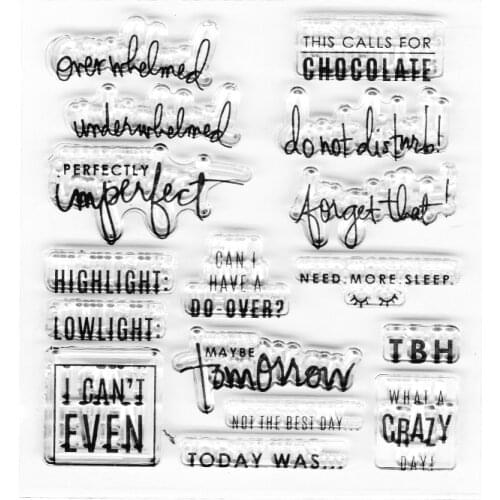 overwhelmed
THIS CALLS FOR
CHOCOLATE
underwhelmed
do not disturb!
PERFECTLY
imperfect
forget that!
HIGHLIGHT:
CAN I
HAVE A
DO-OVER?
NEED.MORE.SLEEP.
LOWLIGHT:
MAYBE
tomorrow
TBH
I CAN'T
EVEN
NOT THE BEST DAY
WHAT A
CRAZY
DAY!
TODAY WAS...